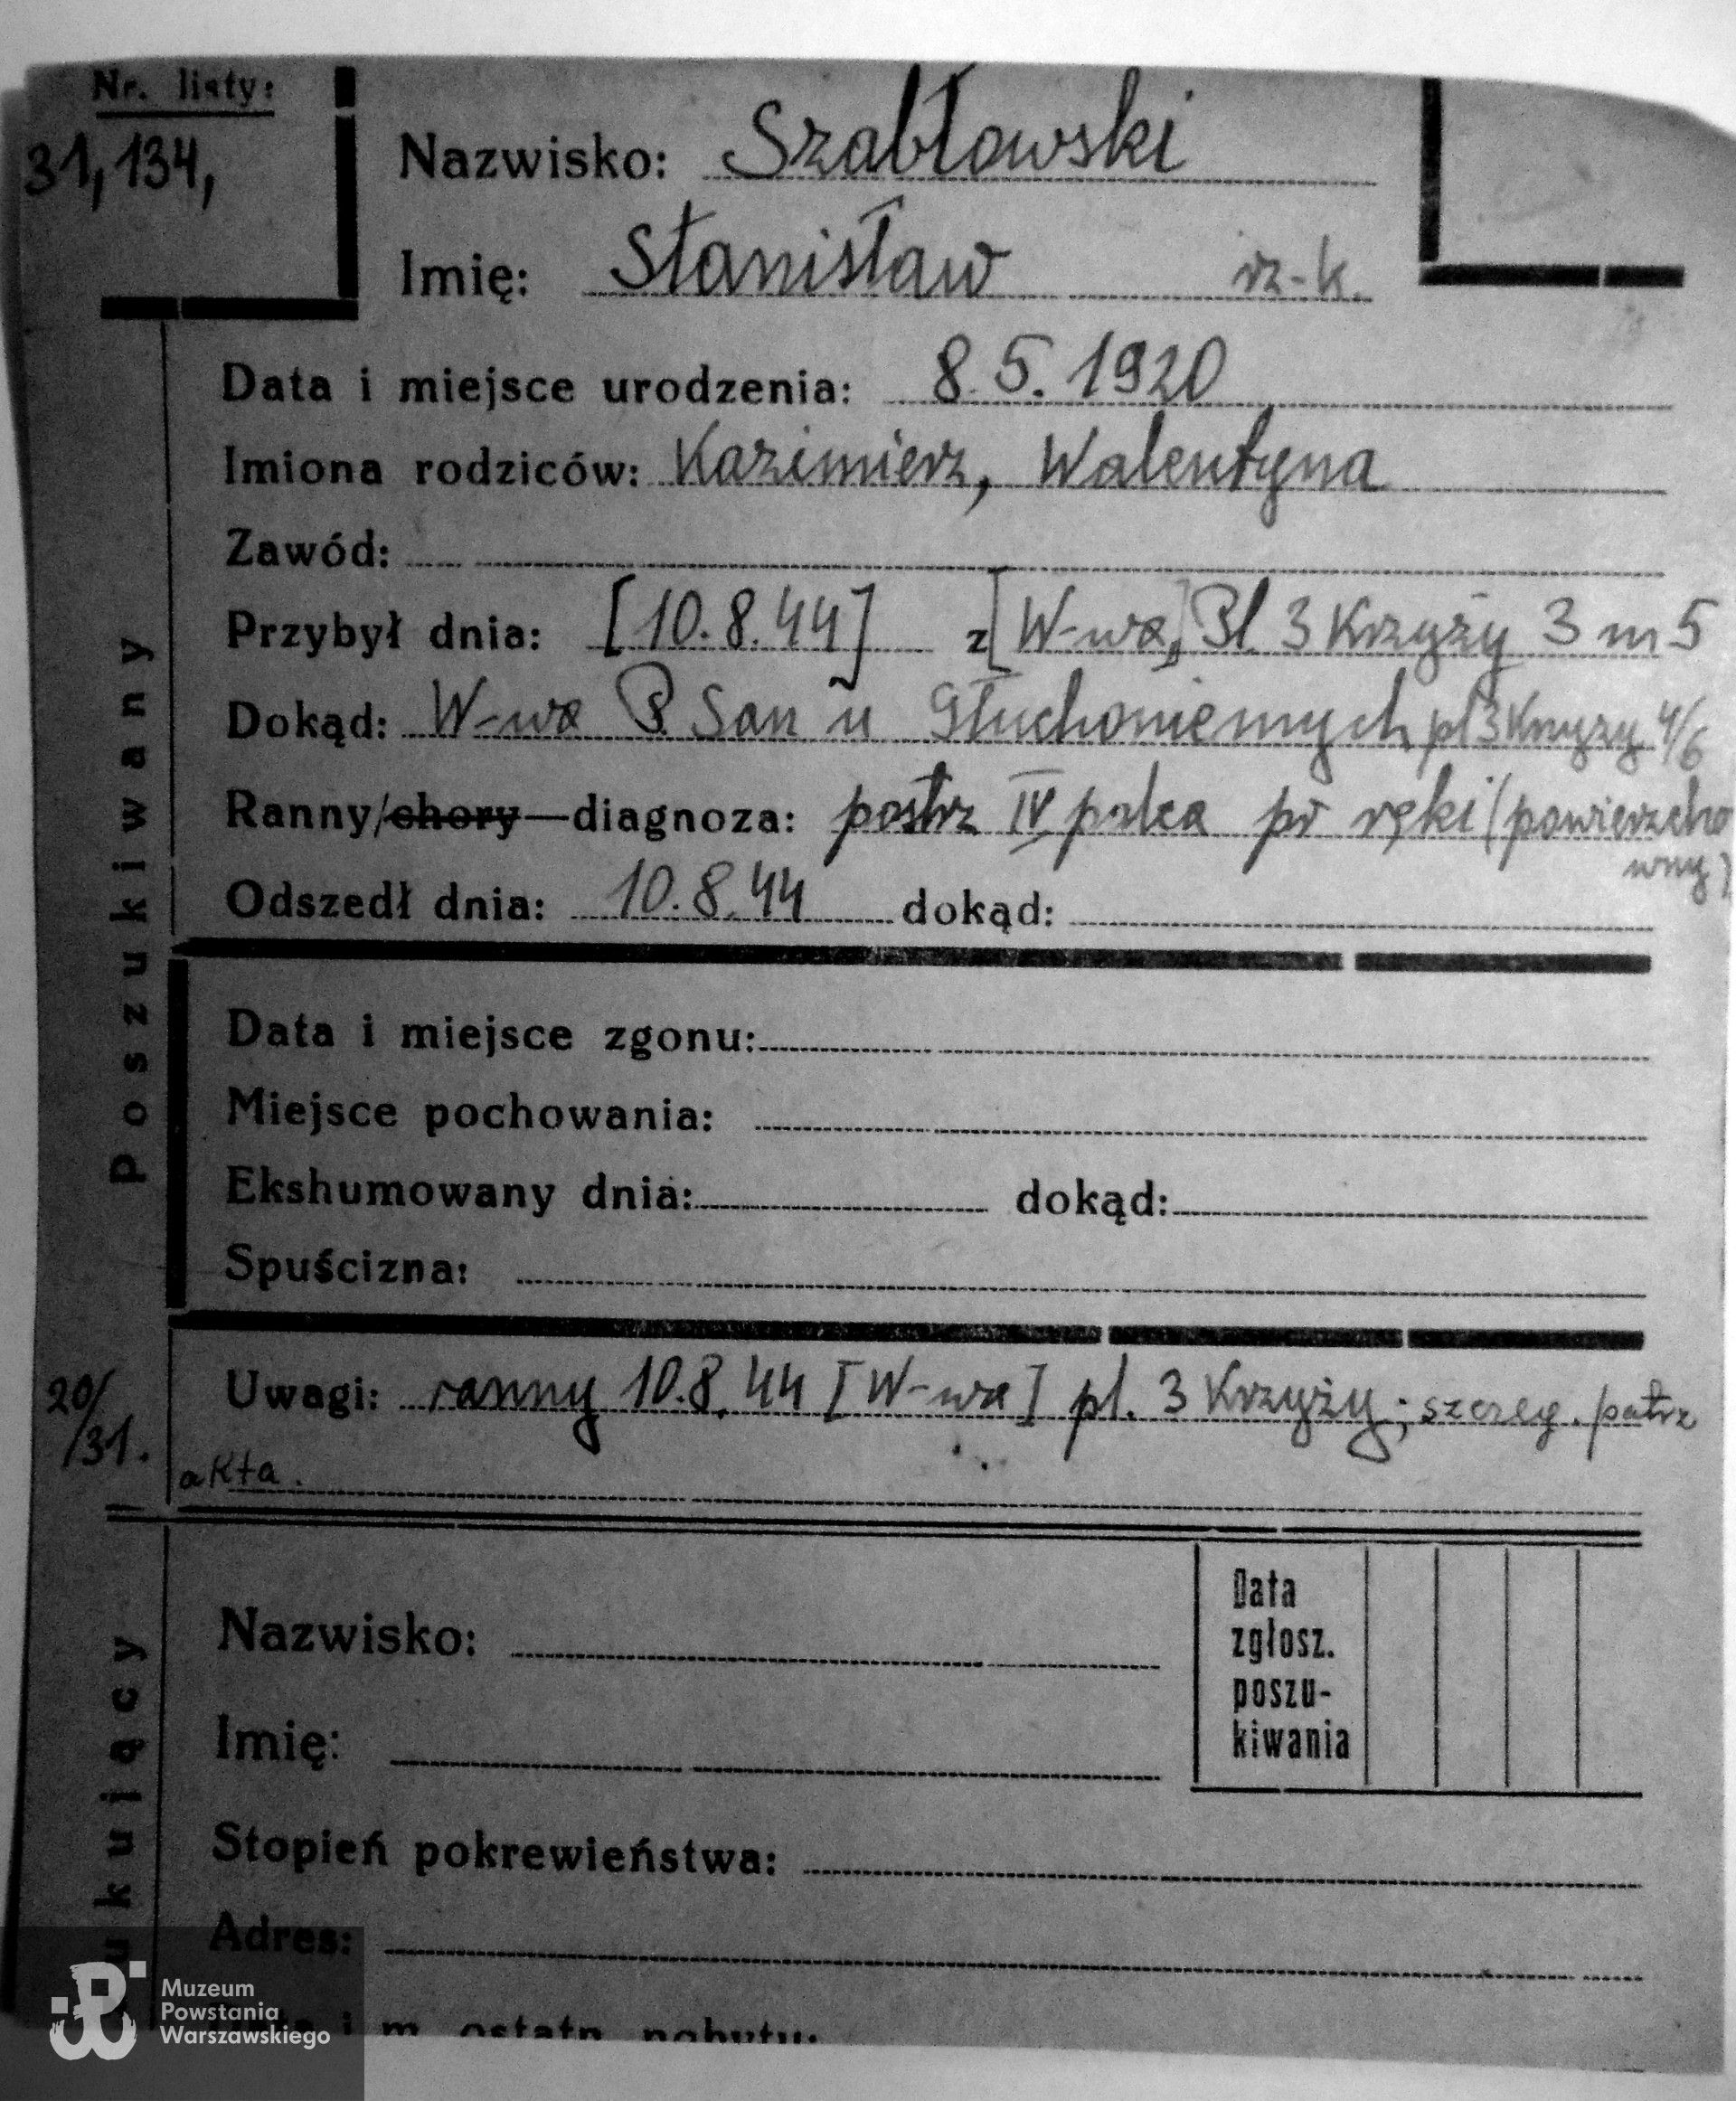 Nr. listy:
31, 134,
Nazwisko: Szabłowski
Imię: Stanisław rz-k.
Data i miejsce urodzenia: 8.5.1920
Imiona rodziców: Kazimierz, Walentyna
Zawód:
Przybył dnia: [10.8.44] z [W-wa] Pl. 3 Krzyży 3 m 5
Dokąd: W-wa P. San u Głuchoniemych pl 3 Krzyży 4/6
Ranny/chory—diagnoza: postrz IV palca pr ręki (powierzcho
wny)
Odszedł dnia: 10.8.44 dokąd:
Data i miejsce zgonu:
Miejsce pochowania:
Ekshumowany dnia: dokąd:
Spuścizna:
Poszukiwany
20/
/31.
Uwagi: ranny 10.8.44 [W-wa] pl. 3 Krzyży; szereg. patrz
akta.
Nazwisko:
Imię:
Data
zgłosz.
poszu-
kiwania
Stopień pokrewieństwa:
Adres:
i m. ostatn. pobytu:
ukujący
Muzeum
Powstania
Warszawskiego